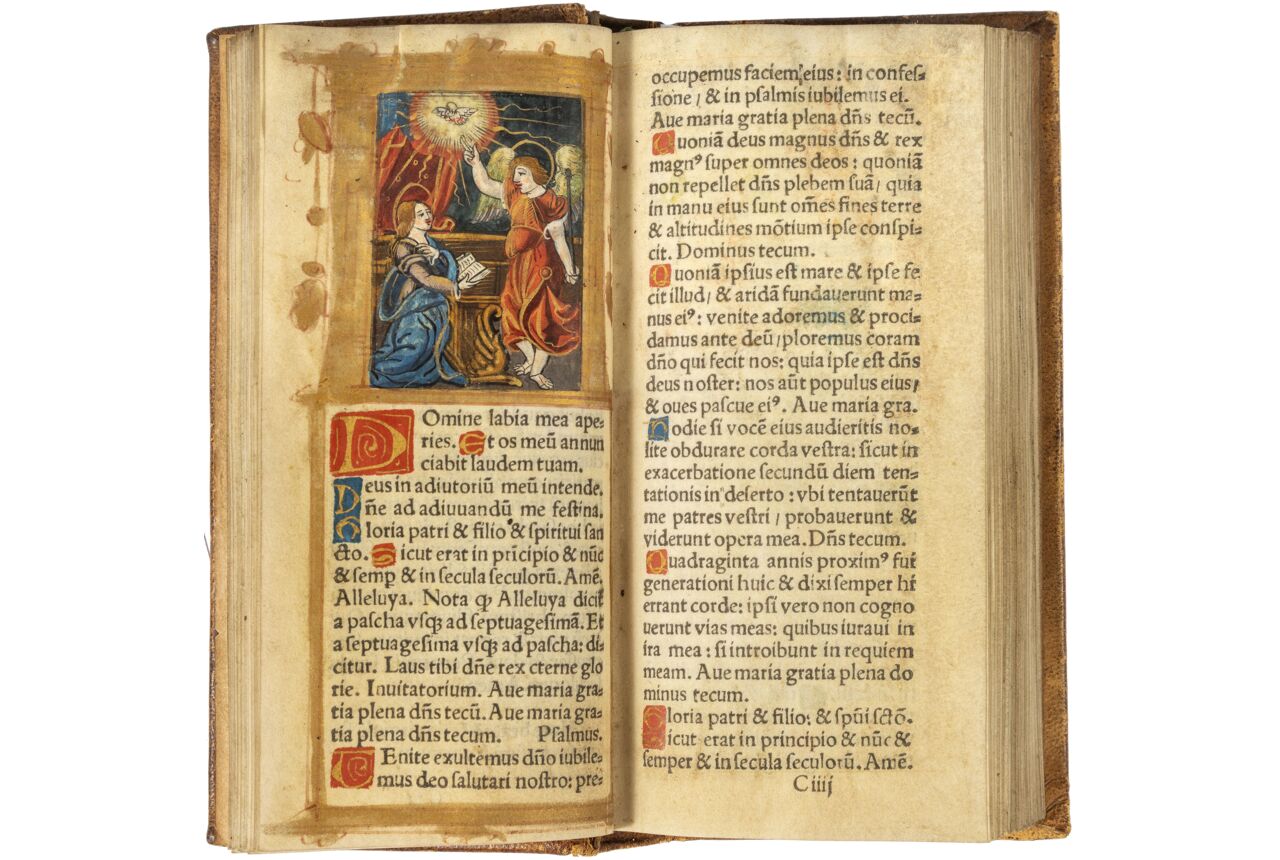 Domine labia mea ape⸗
ries. Et os meū annun
ciabit laudem tuam.
Deus in adiutoriū meū intende.
Dñe ad adiuuandū me festina.
Gloria patri & filio & spiritui san
cto. Sicut erat in prīcipio & nūc
& semꝑ & in secula seculorū. Amē.
Alleluya. Nota ꝙ Alleluya dicit̄
a pascha vsqꝫ ad septuagesimā. Et
a septuagesima vsqꝫ ad pascha: di⸗
citur. Laus tibi dñe rex eterne glo
rie. Inuitatorium. Aue maria gra⸗
tia plena dñs tecū. Aue maria gra⸗
tia plena dñs tecum. Psalmus.
VEnite exultemus dño iubile⸗
mus deo salutari nostro: pre⸗
occupemus faciem eius: in confes⸗
sione / & in psalmis iubilemus ei.
Aue maria gratia plena dñs tecū.
Quoniā deus magnus dñs & rex
magnꝰ super omnes deos: quoniā
non repellet dñs plebem suā / quia
in manu eius sunt om̄es fines terre
& altitudines mōtium ipse conspi⸗
cit. Dominus tecum.
Quoniā ipsius est mare & ipse fe
cit illud / & aridā fundauerunt ma⸗
nus eiꝰ: venite adoremus & proci⸗
damus ante deū / ploremus coram
dño qui fecit nos: quia ipse est dñs
deus noster: nos aūt populus eius /
& oues pascue eiꝰ. Aue maria gra.
Hodie si vocē eius audieritis no⸗
lite obdurare corda vestra: sicut in
exacerbatione secundū diem ten⸗
tationis in deserto: vbi tentauerūt
me patres vestri / probauerunt &
viderunt opera mea. Dñs tecum.
Quadraginta annis proximꝰ fui
generationi huic & dixi semper hi
errant corde: ipsi vero non cogno
uerunt vias meas: quibus iuraui in
ira mea: si introibunt in requiem
meam. Aue maria gratia plena do
minus tecum.
Gloria patri & filio: & spūi sctō.
Sicut erat in principio & nūc &
semper & in secula seculorū. Amē.
Ciiij